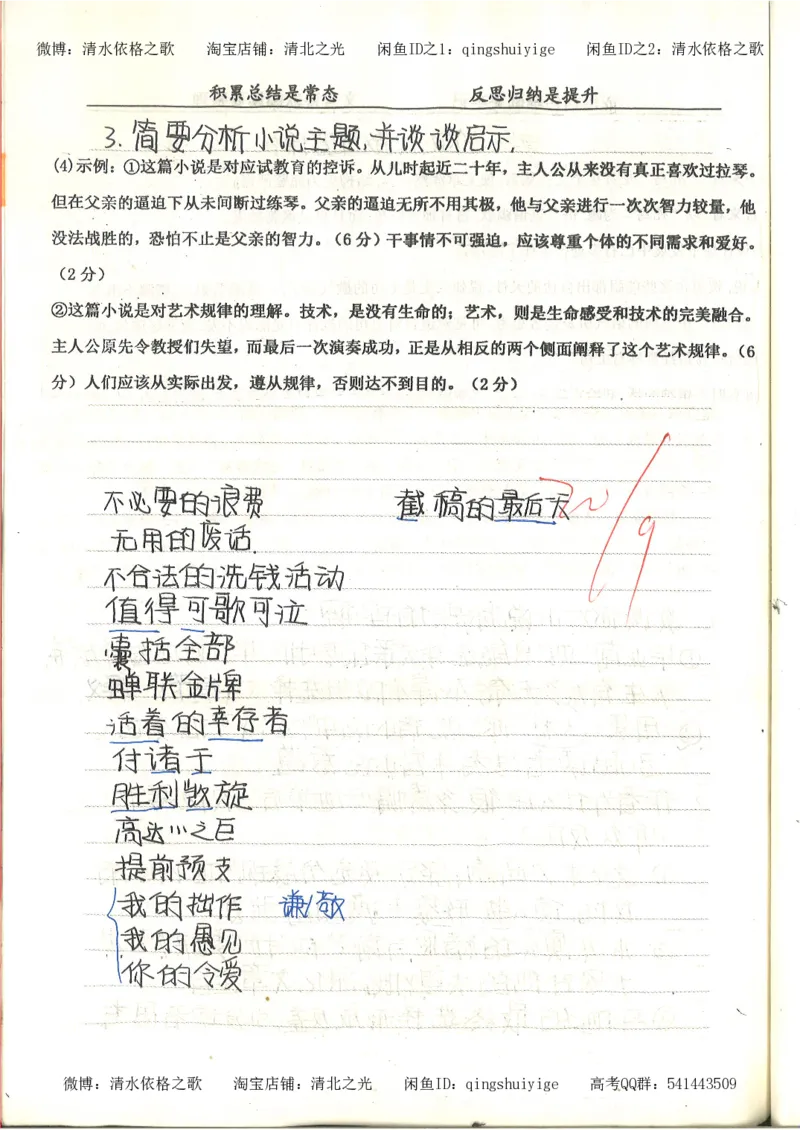 微博：清水依格之歌 淘宝店铺：清北之光 闲鱼ID之1：qingshuiyige 闲鱼ID之2：清水依格之歌
积累总结是常态 反思归纳是提升
3. 简要分析小说主题,并谈谈启示.
(4)示例：①这篇小说是对应试教育的控诉。从儿时起近二十年，主人公从来没有真正喜欢过拉琴。
但在父亲的逼迫下从未间断过练琴。父亲的逼迫无所不用其极，他与父亲进行一次次智力较量，他
没法战胜的，恐怕不止是父亲的智力。（6分）干事情不可强迫，应该尊重个体的不同需求和爱好。
（2分）
②这篇小说是对艺术规律的理解。技术，是没有生命的；艺术，则是生命感受和技术的完美融合。
主人公原先令教授们失望，而最后一次演奏成功，正是从相反的两个侧面阐释了这个艺术规律。（6
分）人们应该从实际出发，遵从规律，否则达不到目的。（2分）
不必要的浪费 截稿的最后天
无用的废话.
不合法的洗钱活动
值得可歌可泣
囊括全部
蝉联金牌
活着的幸存者
付诸于
胜利凯旋
高达川之巨
提前预支
我的拙作 谦/敬
我的愚见
你的令爱
微博：清水依格之歌 淘宝店铺：清北之光 闲鱼ID：qingshuiyige 高考QQ群：541443509